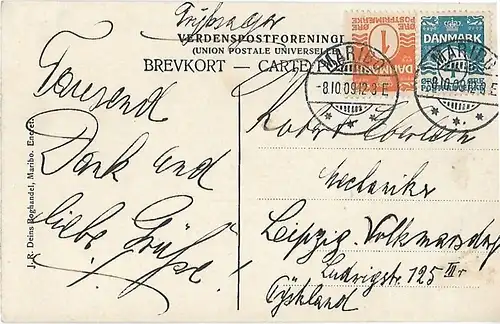 VERDENSPOSTFORENINGEN
(UNION POSTALE UNIVERSELLE)
BREVKORT – CARTE
Tausend
Dank und
liebe Grüße!
J. R. Deins Boghandel, Maribo. Eneret.
1
ØRE
POSTFRIMERKE
DANMARK
DANMARK
MARIBO
-8.10.09.12-3E
MARIBO
-8.10.09.12-3E
Robert
Mechaniker
Leipzig-Volkmarsdorf
Ludwigstr. 125 III r
Tyskland